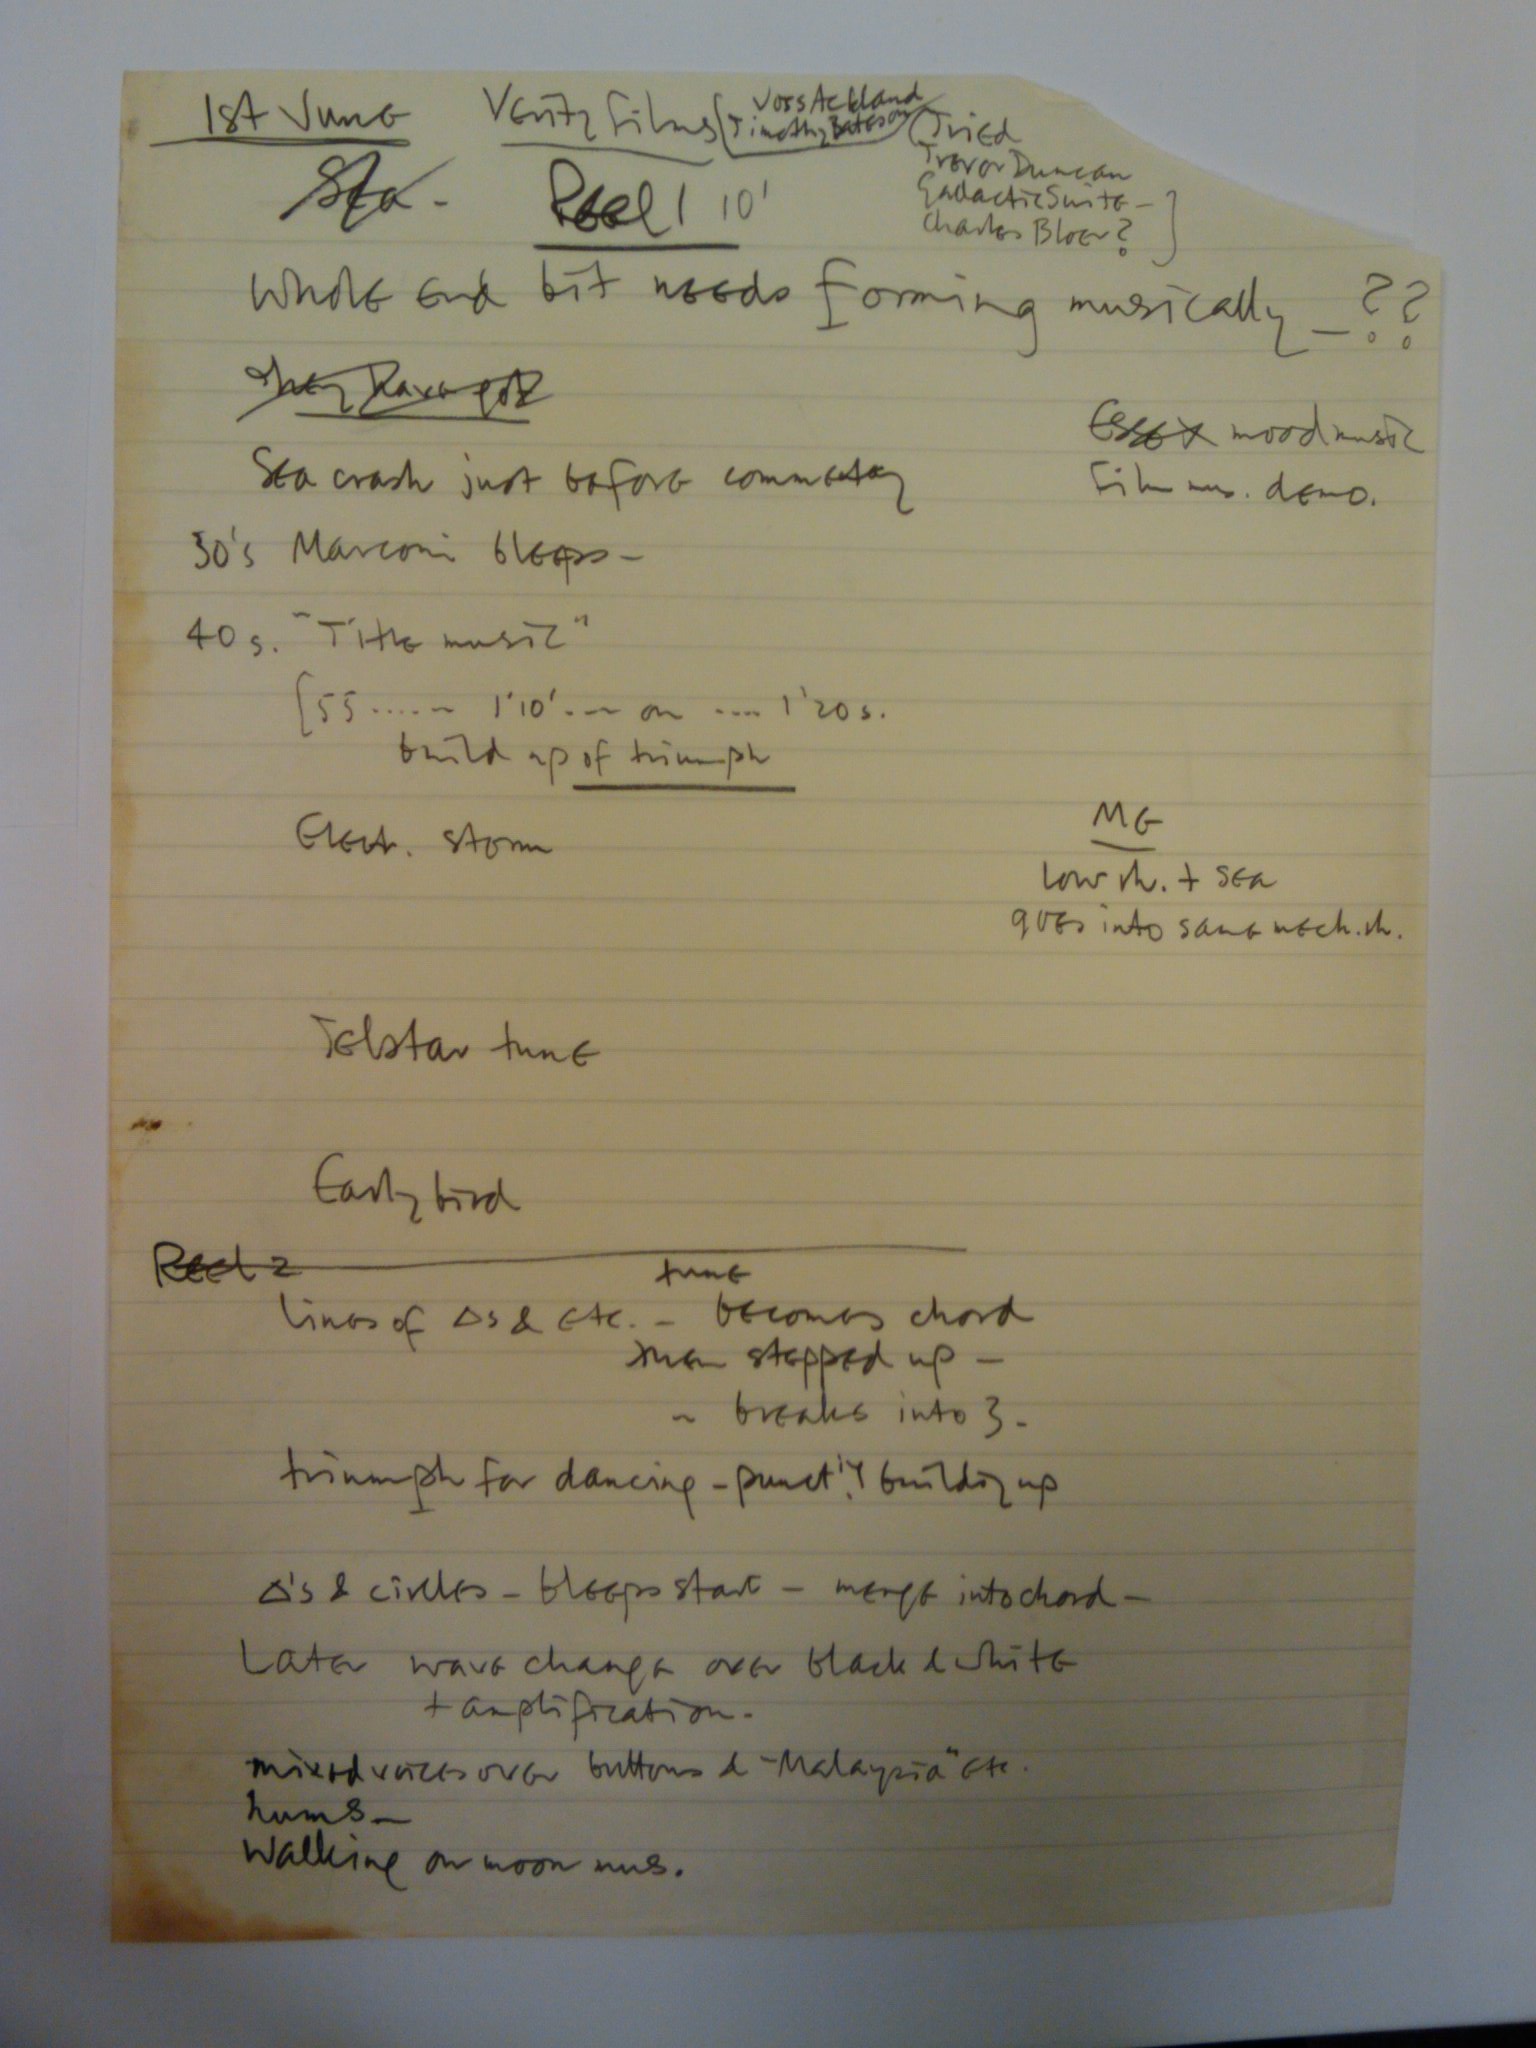 1st June Verity Films (Voss Ackland
Timothy Bateson
(Tried
Trevor Duncan
Galactic Suite -
Charles Bloer?
Sea - Reel 1 10'
Whole end bit needs forming musically - ??
They Have got
Essex mood music
Film mus. demo.
Sea crash just before commentary
30's Marconi bleeps -
40s. "Title music"
[55 ..... 1'10' ... on .... 1'20s.
build up of triumph
Elect. storm
ME
low rh. + sea
goes into same mech. rh.
Telstar tune
Early bird
Reel 2
tune
Lines of Δs & etc. - becomes chord
then stepped up -
~ breaks into 3.
triumph for dancing - punct'.'y building up
Δ's & circles - bleeps start - merge into chord -
Later wave change over black & white
+ amplification.
mixed voices over buttons & "Malaysia" etc.
hums -
Walking on moon mus.